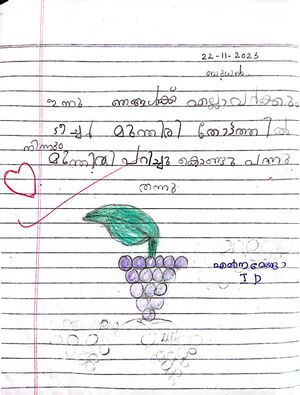 22-11-2023
ബുധൻ
ഇന്നു ഞങ്ങൾക്ക് എല്ലാവർക്കും
ടീച്ചർ മുന്തിരി തോട്ടത്തിൽ
നിന്നും
മുന്തിരി പറിച്ചു കൊണ്ടു വന്നു
തന്നു
I D